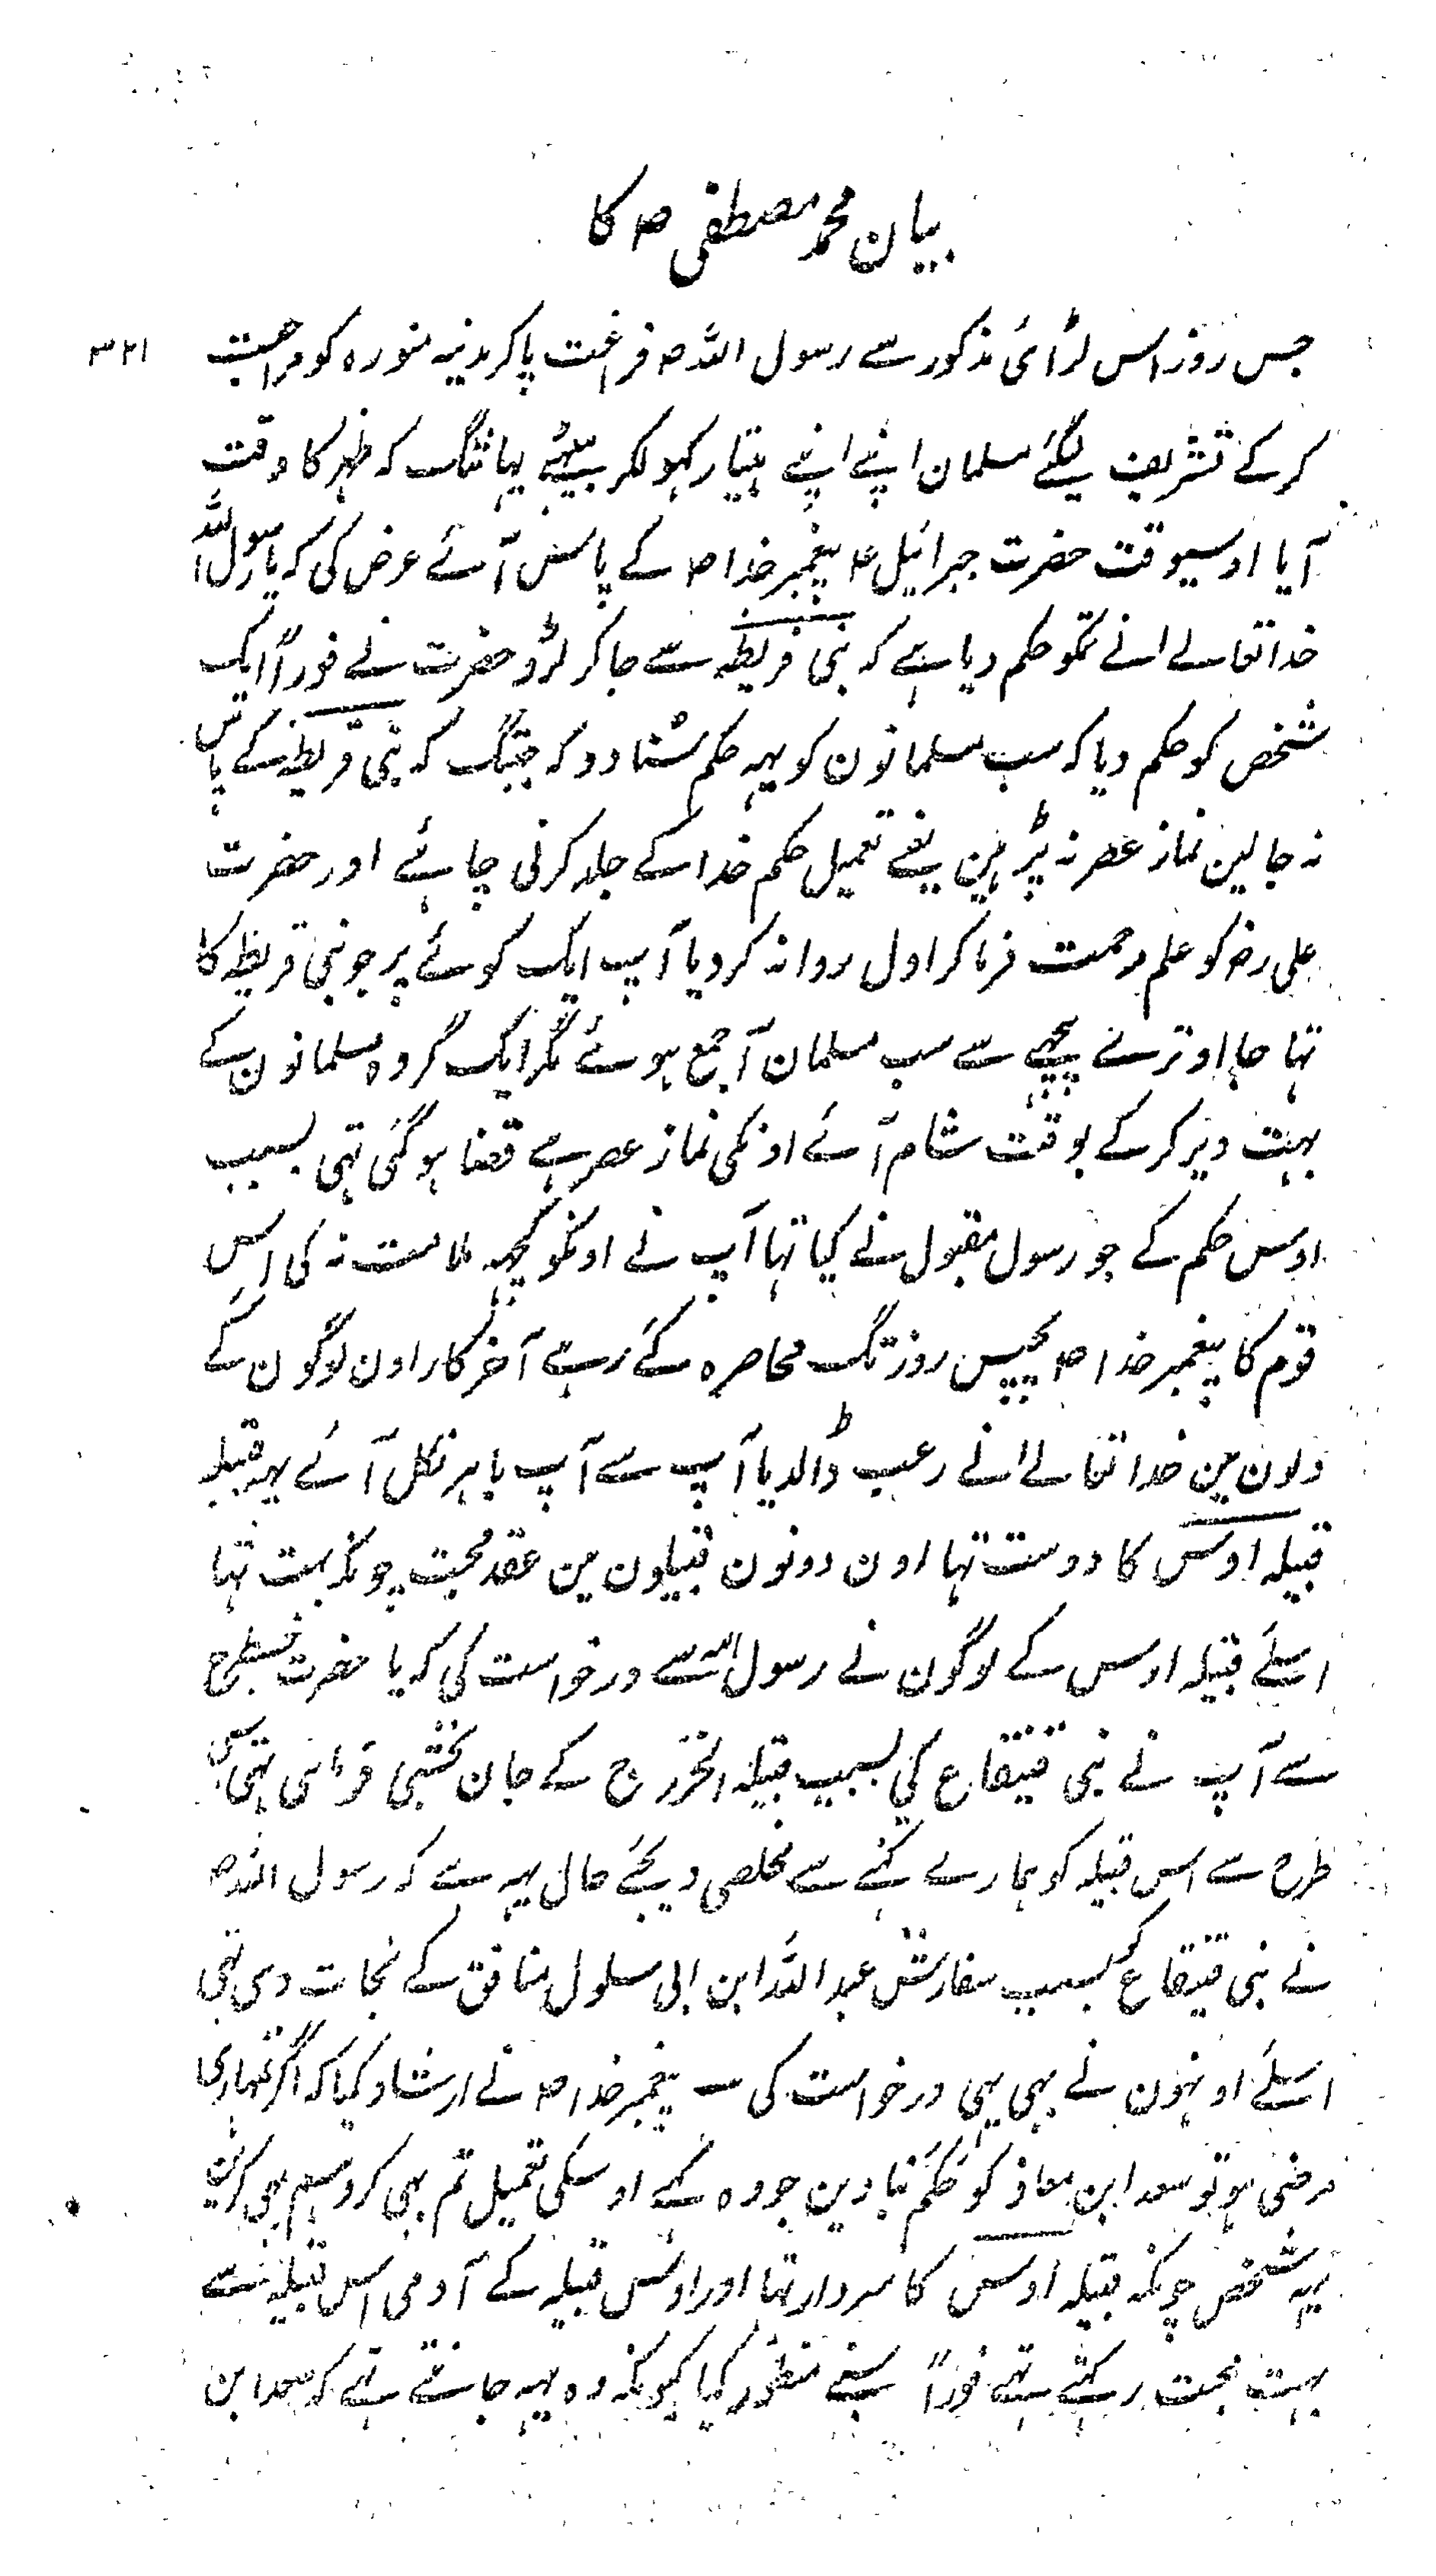 بیان محمد مصطفی ص کا
۳۲۱
جس روز اس لڑائی مذکور سے رسول اللہ ص فراغت پاکر مدینہ منورہ کو مراجعت
کرکے تشریف لیگئے مسلمان اپنے اپنے ہتیار کہولکر بیٹھے یہانتک کہ ظہر کا وقت
آیا اوسیوقت حضرت جبرائیل ع پیغمبر خدا ص کے پاس آئے عرض کی کہ یا رسول اللہ
خدا تعالے انے تمکو حکم دیا ہے کہ بنی قریظہ سے جا کر لڑو حضرت نے فوراً ایک
شخص کو حکم دیا کہ سب مسلمانون کو یہہ حکم سُنا دو کہ جبتک کہ بنی قریظہ کے پاس
نہ جا لین نماز عصر نہ پڑہین یعنے تعمیل حکم خدا کے جلد کرنی چاہئے اور حضرت
علی رضہ کو علم مرحمت فرما کر اول روانہ کردیا آپ ایک کوئے پر جو بنی قریظہ کا
تہا جا اوترے پیچہے سے سب مسلمان آ جمع ہوئے مگر ایک گروہ مسلمانون کے
بہت دیر کرکے بوقت شام آئے اونکی نماز عصر ہے قضا ہوگئی تہی بسبب
اوس حکم کے جو رسول مقبول نے کیا تہا آپ نے اونکو کچہہ ملامت نہ کی اس
قوم کا پیغمبر خدا ص پچیس روز تک محاصرہ کئے رہے آخر کار اون لوگون کے
دلون مین خدا تعالے انے رعب ڈالدیا آپ سے آپ باہر نکل آئے یہہ قبیلہ
قبیلہ اوس کا دوست تہا اون دونون قبیلون مین عقد محبت چونکہ بہت تہا
اسلئے قبیلہ اوس کے لوگون نے رسول اللہ سے درخواست کی کہ یا حضرت جسطرح
سے آپ نے بنی قینقاع کی بسبب قبیلہ الخزرج کے جان بخشی فرمائی تہی اسی
طرح سے اس قبیلہ کو ہمارے کہنے سے مخلصی دیجئے حال یہہ ہے کہ رسول اللہ ص
نے بنی قینقاع کو بسبب سفارش عبد اللہ ابن ابی سلول منافق کے نجات دی تہی
اسلئے اونہون نے بہی یہی درخواست کی ــ پیغمبر خدا ص نے ارشاد کیا کہ اگر تمہاری
مرضی ہو تو سعد ابن معاذ کو حَکَم بنا دین جو وہ کہے اوسکی تعمیل تم بہی کرو ہم بہی کرین
یہہ شخص چونکہ قبیلہ اوس کا سردار تہا اور اوس قبیلہ کے آدمی اس قبیلہ سے
بہت محبت رکہتے تہے فوراً سبنے منظور کیا کیونکہ وہ یہہ جانتے تہے کہ سعد ابن